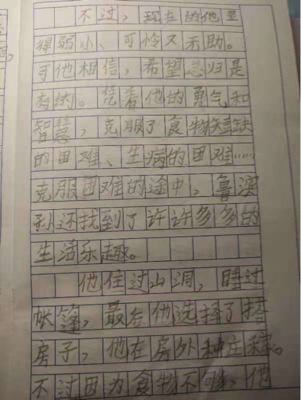 不过，现在的他显
得弱小、可怜又无助。
可他相信，希望总归是
有的。凭着他的勇气和
智慧，克服了食物短缺
的困难、生病的困难……
克服困难的途中，鲁滨
孙还找到了许许多多的
生活乐趣。
他住过山洞，睡过
帐篷，最后他选择了搭
房子，他在房外种庄稼。
不过因为食物不够，他